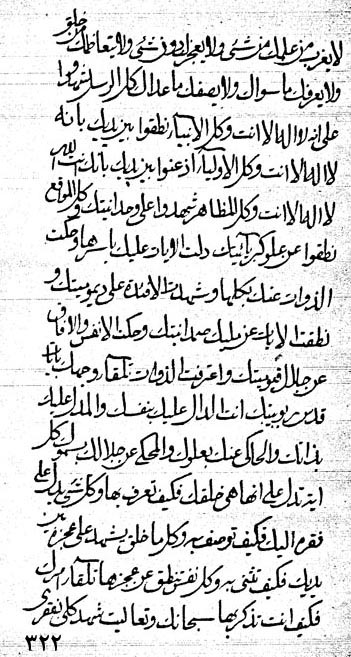 لا يعزب من علمك من شئ ولا يعجزك دون شئ ولا يتعاظمك من خلق
ولا يعرفك ما سواك ولا يصفك ما عداك كل الرسل شهدوا
على انه لا اله الا انت وكل الانبياء نطقوا بين يديك بانه
لا اله الا انت وكل الاولياء اذعنوا بين يديك بانك انت الله
لا اله الا انت وكل المظاهر شهدوا على وحدانيتك وكل المواقع
نطقوا عن علو كبريائيتك دلت الايات عليك باسرها وحكت
الذوات عنك بكلها وشهدت الافئدة على ديموميتك و
نطقت الايات عن مليك صمدانيتك وحكت الانفس والافاق
عن جلال قيوميتك واعترفت الذوات تلقاء وجهك
قدس ربوبيتك انت الدال عليك بنفسك والمدل عليك
بذاتك والحاكى عنك بعلوك والمحكى عن جلالك كل
اية تدل على انها هى خلقك فكيف تعرف بها وكل شئ يدل على
فقره اليك فكيف توصف به وكل ما خلق يشهد على عجزه بين
يديك فكيف تثنى به وكل نفس تنطق عن عجزها تلقاء
فكيف انت تذكر بها سبحانك وتعاليت شهد كلى بفقرى
٣٢٢